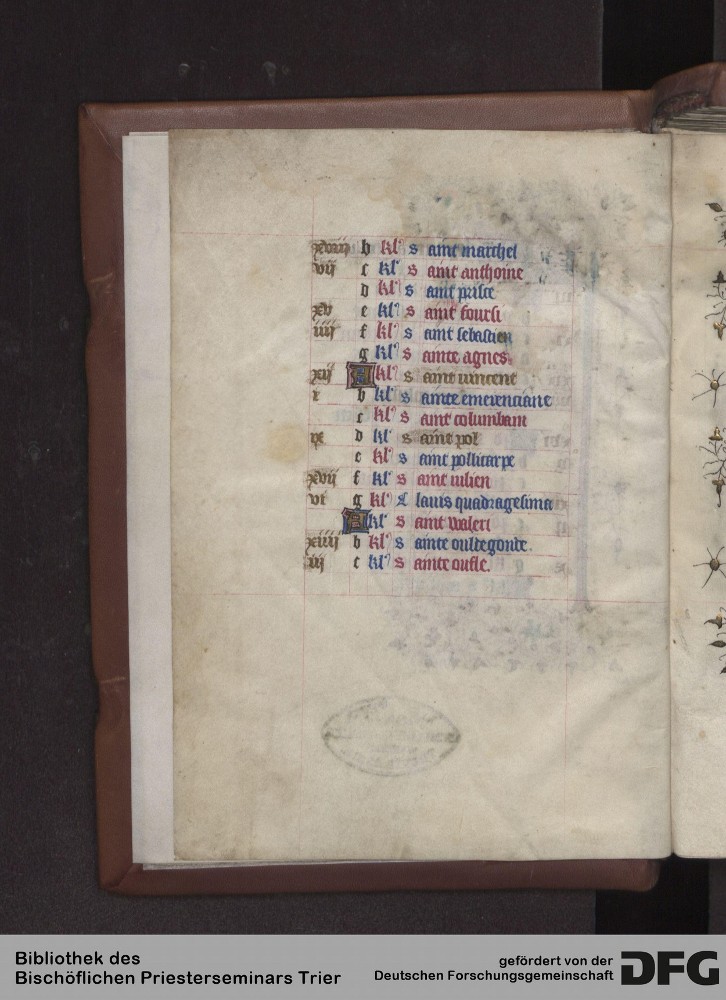 xviii b kl' s aint marchel
vii c kl' s aint anthoine
d kl' s aint prisce
xv e kl' s aint foursi
iiii f kl' s aint sebastien
g kl' s ainte agnes
xii A kl' s aint vincent
i b kl' s ainte emerenciane
c kl' s aint columbain
ix d kl' s aint pol
e kl' s aint pollicarpe
xvii f kl' s aint iulien
vi g kl' C lauis quadragesima
A kl' s aint waleri
xiiii b kl' s ainte ouldegonde.
iii c kl' s ainte oufle.
Bibliothek des
Bischöflichen Priesterseminars Trier
gefördert von der
Deutschen Forschungsgemeinschaft
DFG